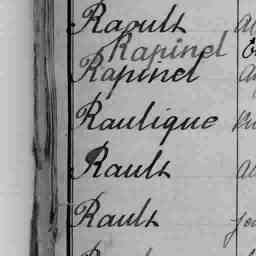 Raoult
Rapinel
Rapinel
Raulique
Rault
Rault